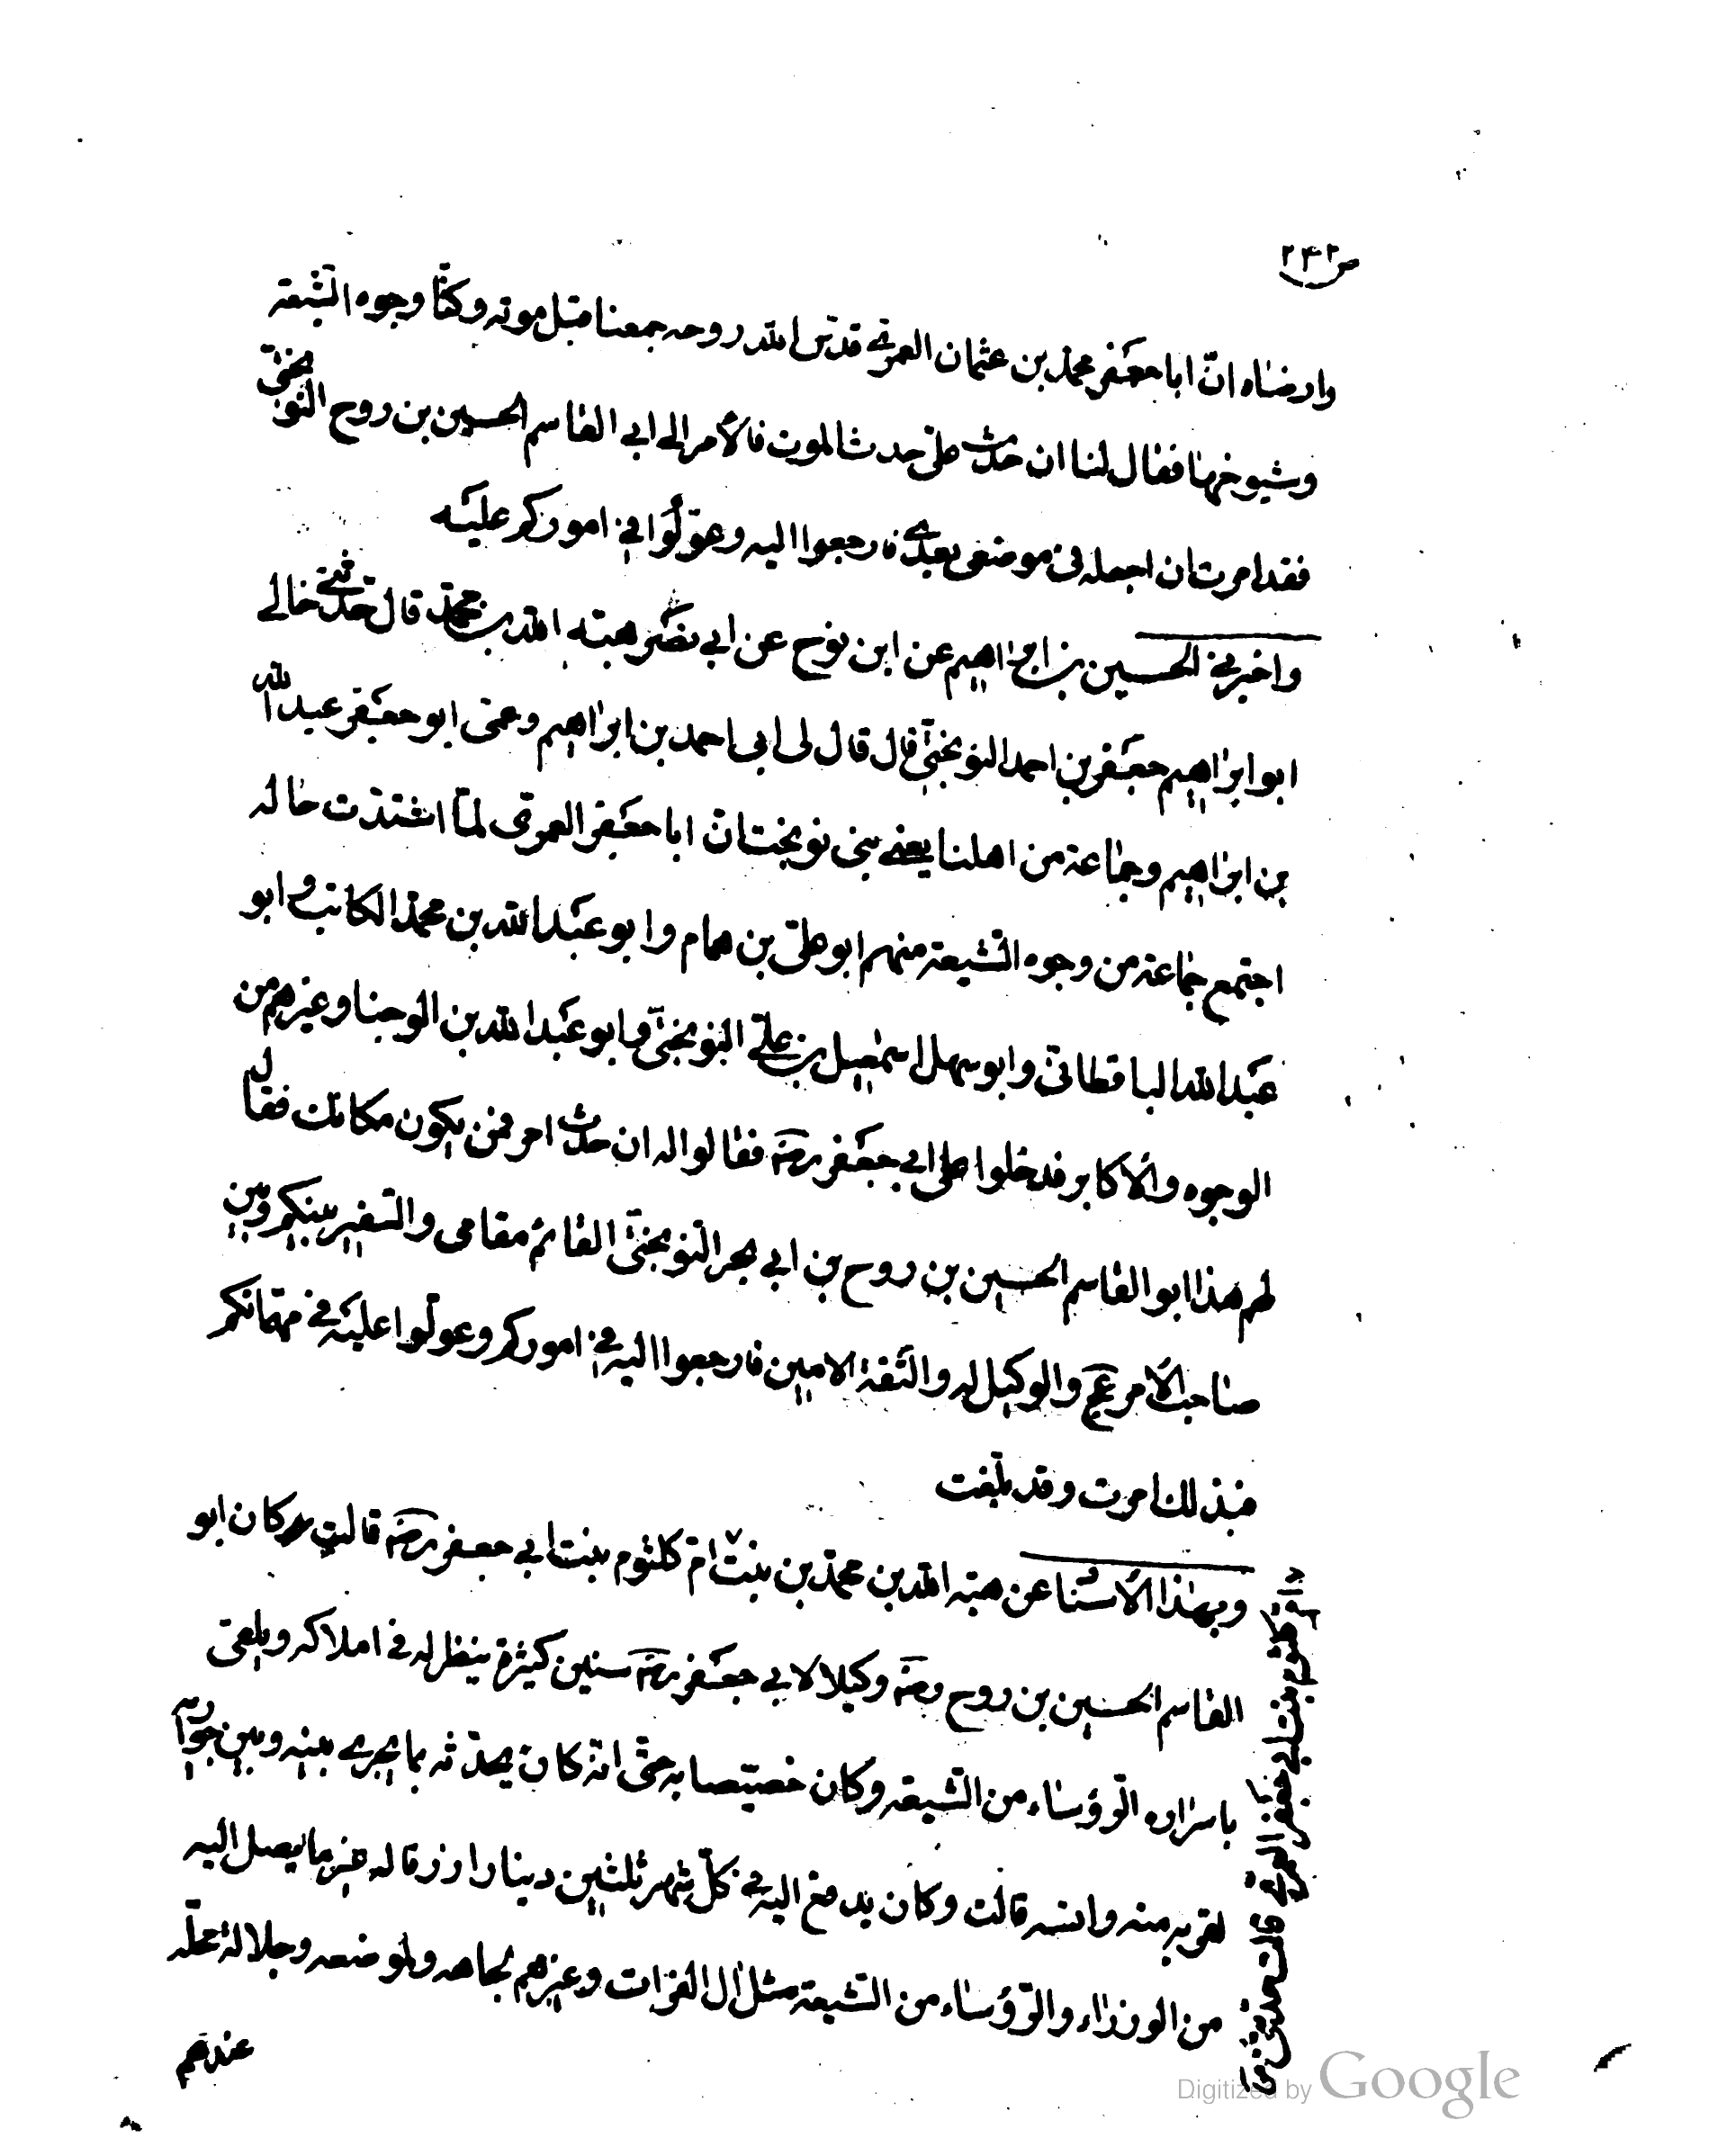 ص ٢٤٢
وارضاه انّ ابا جعفر محمد بن عثمان العمري قدّس الله روحه جمعنا قبل موته وكنّا وجوه الشيعة
وشيوخها فقال لنا ان حدث علىّ حدث الموت فالأمر الى ابي القاسم الحسين بن روح النوبختي
فقد امرت ان اجعله في موضعي بعدي فارجعوا اليه وعوّلوا في اموركم عليه
واخبرني الحسين بن ابراهيم عن ابن نوح عن ابي نصر هبة الله بن محمد قال حدثني خالي
ابو ابراهيم جعفر بن احمد النوبختيّ قال قال لي ابي احمد بن ابراهيم وعمّي ابو جعفر عبد الله
بن ابراهيم وجماعة من اهلنا يعني بني نوبخت انّ ابا جعفر العمري لمّا اشتدّت حاله
اجتمع جماعة من وجوه الشيعة منهم ابو علىّ بن همام وابو عبد الله بن محمد الكاتب وابو
عبد الله الباقطانيّ وابو سهل اسمعيل بن علي النوبختيّ وابو عبد الله بن الوجنا وغيرهم من
الوجوه والأكابر فدخلوا على ابي جعفر رضه فقالوا له ان حدث امر فمن يكون مكانك فقال
لهم هذا ابو القاسم الحسين بن روح بن ابي بحر النوبختيّ القائم مقامي والسفير بينكم وبين
صاحب الأمر عج والوكيل له والثقة الامين فارجعوا اليه في اموركم وعوّلوا عليه في مهمّاتكم
فبذلك امرت وقد بلّغت
وبهذا الأسناد عن هبة الله بن محمد بن بنت امّ كلثوم بنت ابي جعفر رضه قالت كان ابو
القاسم الحسين بن روح رضه وكيلا لابي جعفر رضه سنين كثيرة ينظر له في املاكه ويلقى
باسراره الرّؤساء من الشيعة وكان خصّيصا به حتّى انّه كان يحدّثه بما يجري بينه وبين جواريه
لقربه منه وانسه قالت وكان يدفع اليه في كلّ شهر ثلثين دينارا رزقا له غير ما يصل اليه
من الوزراء والرّؤساء من الشيعة مثل آل الفرات وغيرهم لجاهه ولموضعه وجلالة محلّه
عندهم
كلثوم بنت ابي جعفر العمري قالت حدثتني
Digitized by Google